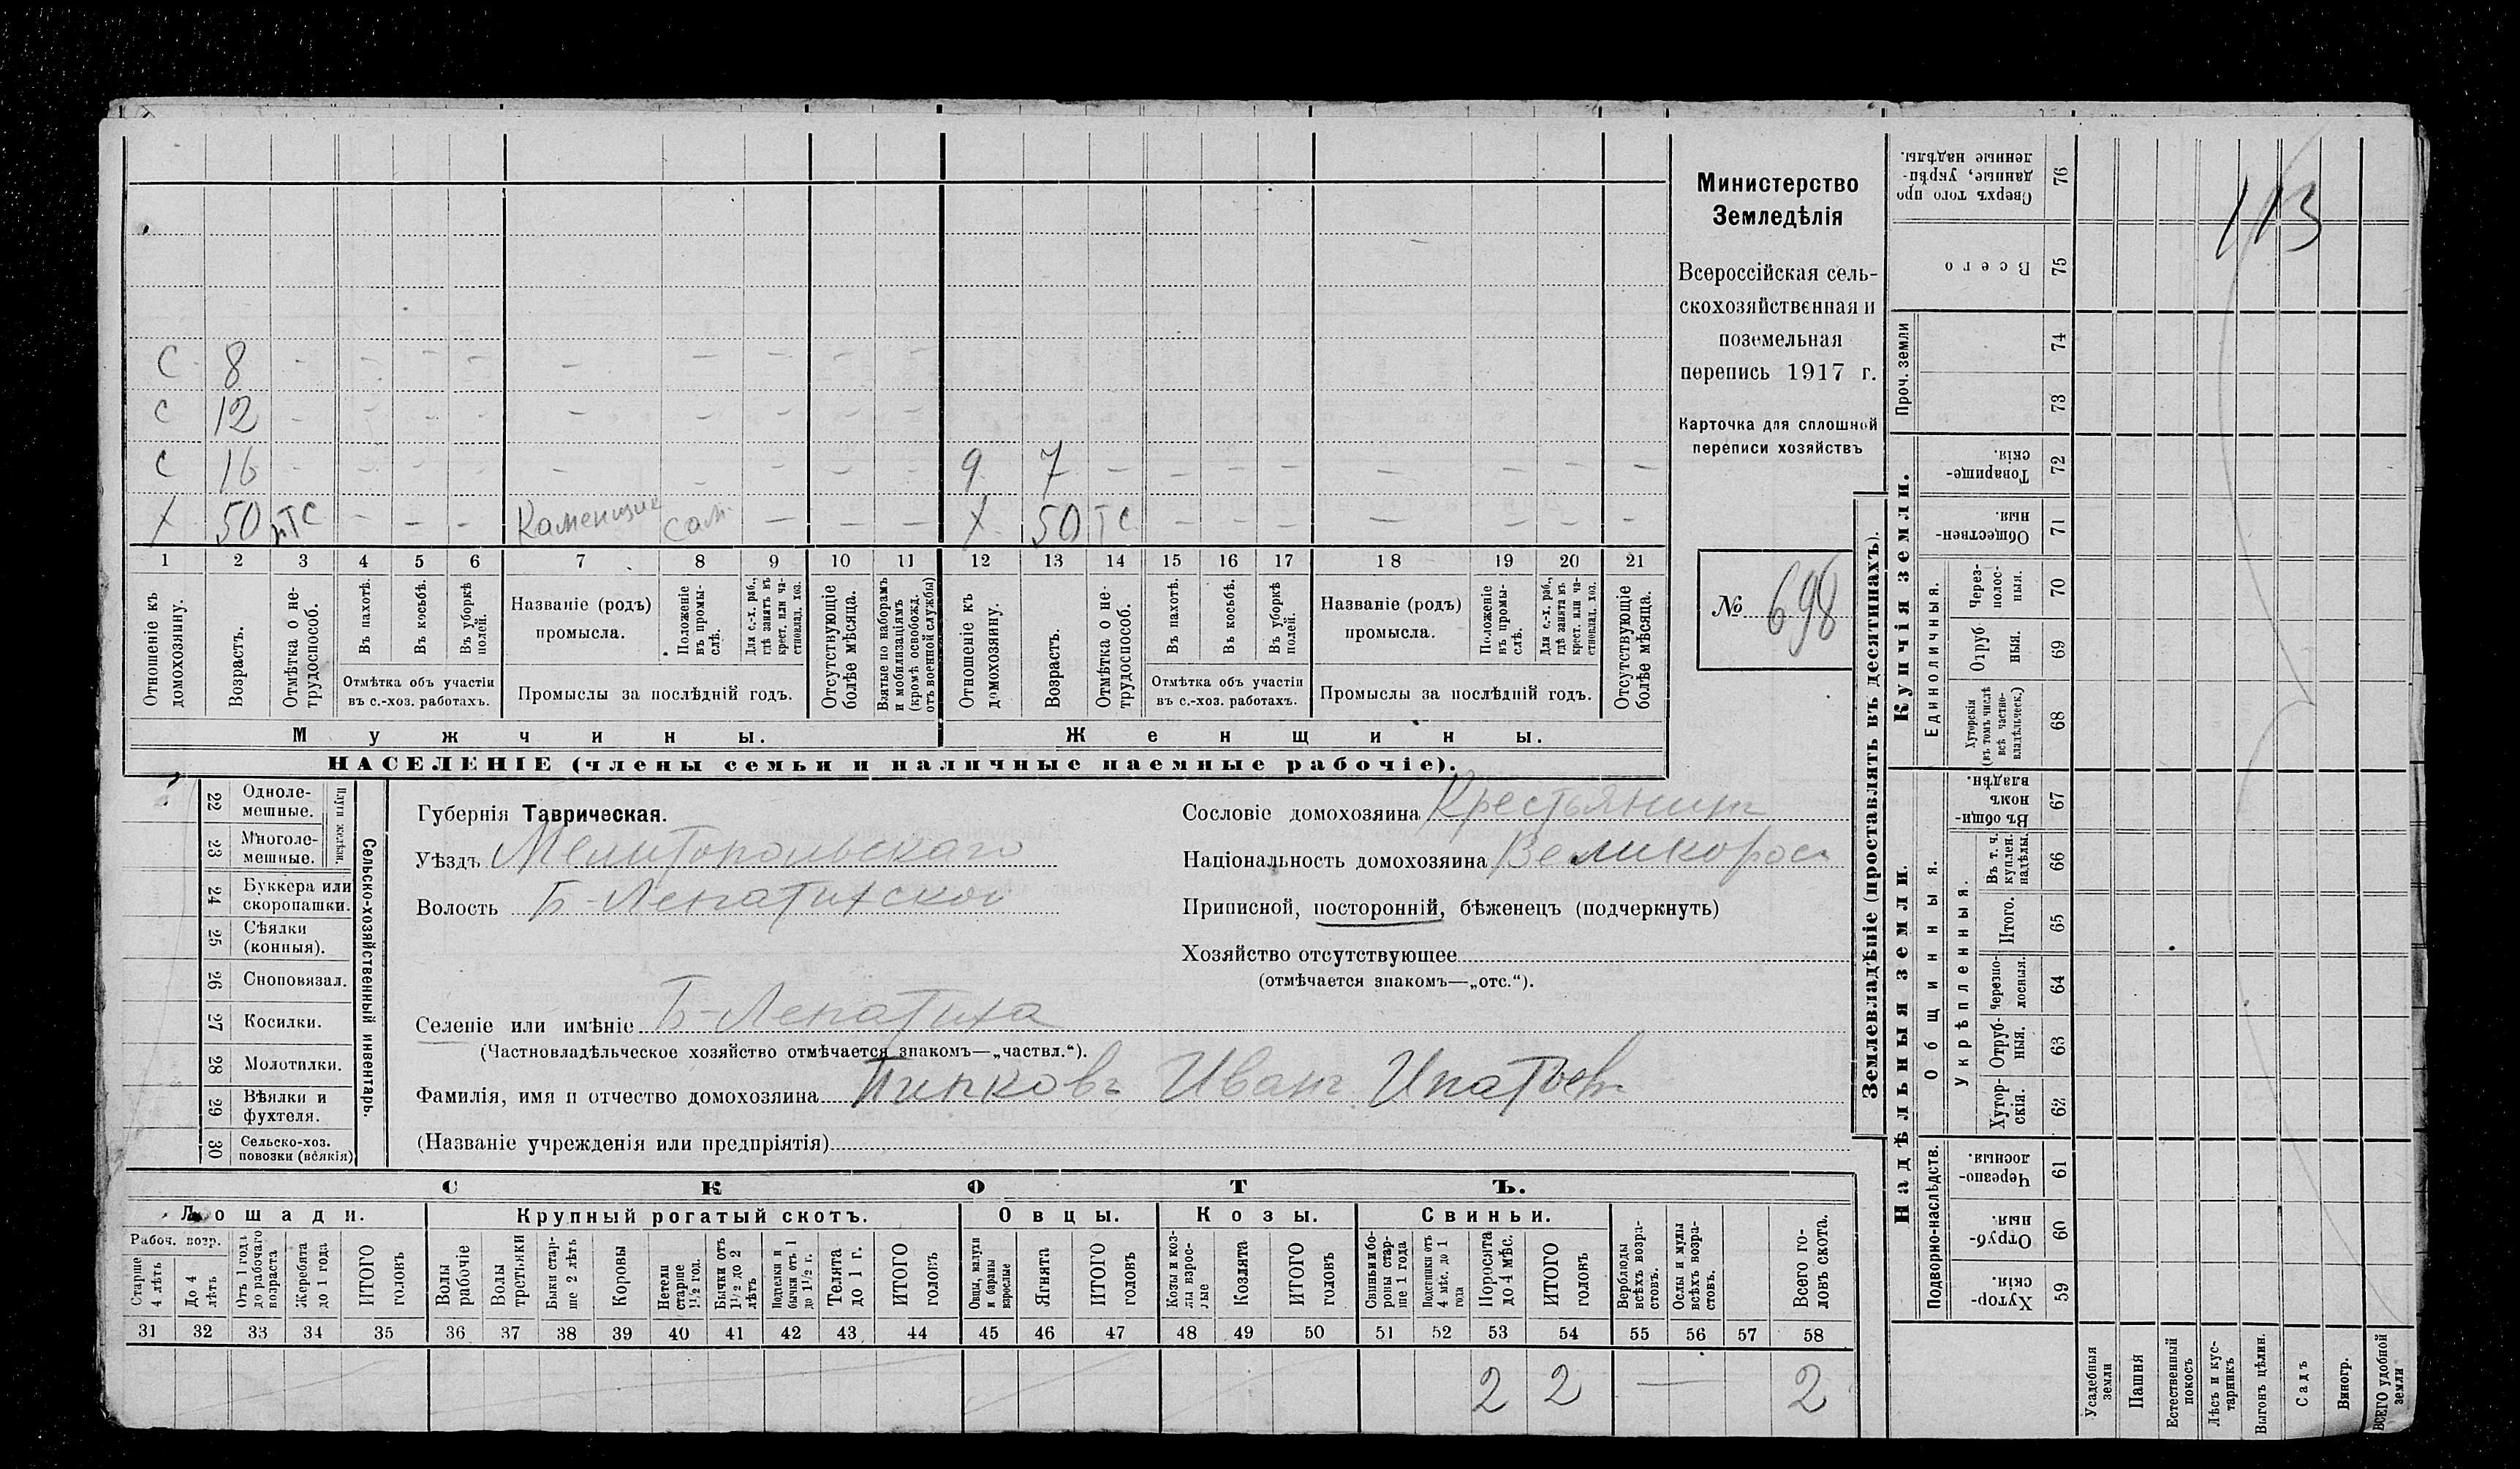 С 8 - - - - - - - - -
С 12 - - - - - - - - -
С 16 - - - - - - - - - 9 7 - - - - - - - -
Х 50 нТС - - - Каменщик сам. - - - Х 50 ТС - - - - - - -
1 2 3 4 5 6 7 8 9 10 11 12 13 14 15 16 17 18 19 20 21
Отношеніе къ домохозяину.
Возрастъ.
Отмѣтка о нетрудоспособ.
Въ пахотѣ.
Въ косьбѣ.
Въ уборкѣ полей.
Отмѣтка объ участіи
въ с.-хоз. работахъ.
Названіе (родъ)
промысла.
Положеніе въ промыслѣ.
Для с.-х. раб., гдѣ занятъ въ крест. или частновлад. хоз.
Промыслы за послѣдній годъ.
Отсутствующіе болѣе мѣсяца.
Взятые по наборамъ и мобилизаціямъ (кромѣ освобожд. отъ военной службы)
Отношеніе къ домохозяину.
Возрастъ.
Отмѣтка о нетрудоспособ.
Въ пахотѣ.
Въ косьбѣ.
Въ уборкѣ полей.
Отмѣтка объ участіи
въ с.-хоз. работахъ.
Названіе (родъ)
промысла.
Положеніе въ промыслѣ.
Для с.-х. раб., гдѣ занята въ крест. или частновлад. хоз.
Промыслы за послѣдній годъ.
Отсутствующіе болѣе мѣсяца.
Мужчины.
Женщины.
НАСЕЛЕНІЕ (члены семьи и наличные наемные рабочіе).
Министерство
Земледѣлія
Всероссійская сель-
скохозяйственная и
поземельная
перепись 1917 г.
Карточка для сплошной
переписи хозяйствъ
№ 698
22 Одноле-
мешные.
23 Многоле-
мешные.
Плуги желѣзн.
24 Буккера или
скоропашки.
25 Сѣялки
(конныя).
26 Сноповязал.
27 Косилки.
28 Молотилки.
29 Вѣялки и
фухтеля.
30 Сельско-хоз.
повозки (всякія)
Сельско-хозяйственный инвентарь.
Губернія Таврическая.
Уѣздъ Мелитопольскаго
Волость Б-Лепатихской
Селеніе или имѣніе Б-Лепатиха
(Частновладѣльческое хозяйство отмѣчается знакомъ—„частвл.“).
Фамилія, имя и отчество домохозяина Пипковъ Иванъ Ипатьевъ
(Названіе учрежденія или предпріятія)
Сословіе домохозяина Крестьянинъ
Національность домохозяина Великорос
Приписной, посторонній, бѣженецъ (подчеркнуть)
Хозяйство отсутствующее
(отмѣчается знакомъ—„отс.“).
СКОТЪ.
Лошади. Крупный рогатый скотъ. Овцы. Козы. Свиньи.
Рабоч. возр.
Старше 4 лѣтъ
До 4 лѣтъ
Отъ 1 года до рабочаго возраста
Жеребята до 1 года
ИТОГО головъ
Волы рабочіе
Волы третьяки
Быки старше 2 лѣтъ
Коровы
Нетели старше 1 1/2 гол.
Бычки отъ 1 1/2 до 2 лѣтъ
Подтелки и бычки отъ 1 до 1 1/2 г.
Телята до 1 г.
ИТОГО головъ
Овцы, валухи и бараны взрослые
Ягнята
ИТОГО головъ
Козы и козлы взрослые
Козлята
ИТОГО головъ
Свиньи и бороны старше 1 года
Подсвинки отъ 4 мѣс. до 1 года
Поросята до 4 мѣс.
ИТОГО головъ
Верблюды всѣхъ возрастовъ.
Ослы и мулы всѣхъ возрастовъ.
Всего головъ скота.
31 32 33 34 35 36 37 38 39 40 41 42 43 44 45 46 47 48 49 50 51 52 53 54 55 56 57 58
2 2 — 2
Землевладѣніе (проставлять въ десятинахъ).
Купчія земли.
Надѣльныя земли.
Сверхъ того проданные, укрѣпленные надѣлы. 76
Всего 75
Проч. земли 74
73
Товарищескія. 72
Общественныя. 71
Единоличныя.
Черезполосныя. 70
Отрубныя. 69
Хуторскія (въ томъ числѣ всѣ частновладѣльческ.) 68
Общинныя.
Въ общинномъ владѣн. 67
Укрѣпленныя.
Въ т. ч. куплен. надѣлы. 66
Итого. 65
Черезполосныя. 64
Отрубныя. 63
Хуторскія. 62
Подворно-наслѣдств.
Черезполосныя. 61
Отрубныя. 60
Хуторскія. 59
Усадебныя земли
Пашня
Естественный покосъ
Лѣсъ и кустарникъ
Выгонъ цѣлин.
Садъ
Виногр.
ВСЕГО удобной земли
113